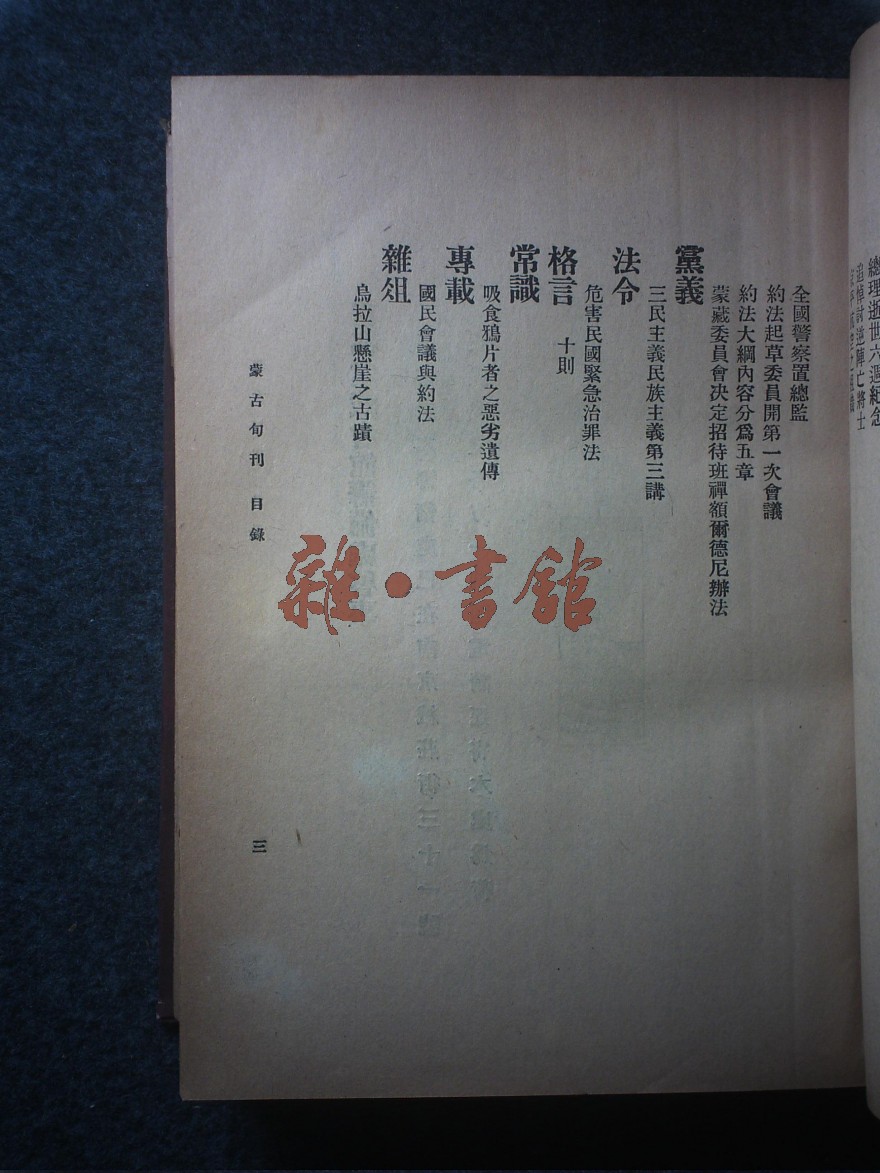 總理逝世六週紀念
追悼討逆陣亡將士
全國警察置總監
約法起草委員開第一次會議
約法大綱內容分爲五章
蒙藏委員會決定招待班禪額爾德尼辦法
黨義
三民主義民族主義第三講
法令
危害民國緊急治罪法
格言 十則
常識
吸食鴉片者之惡劣遺傳
專載
國民會議與約法
雜俎
烏拉山懸崖之古蹟
蒙古旬刊 目錄
三
雜·書館